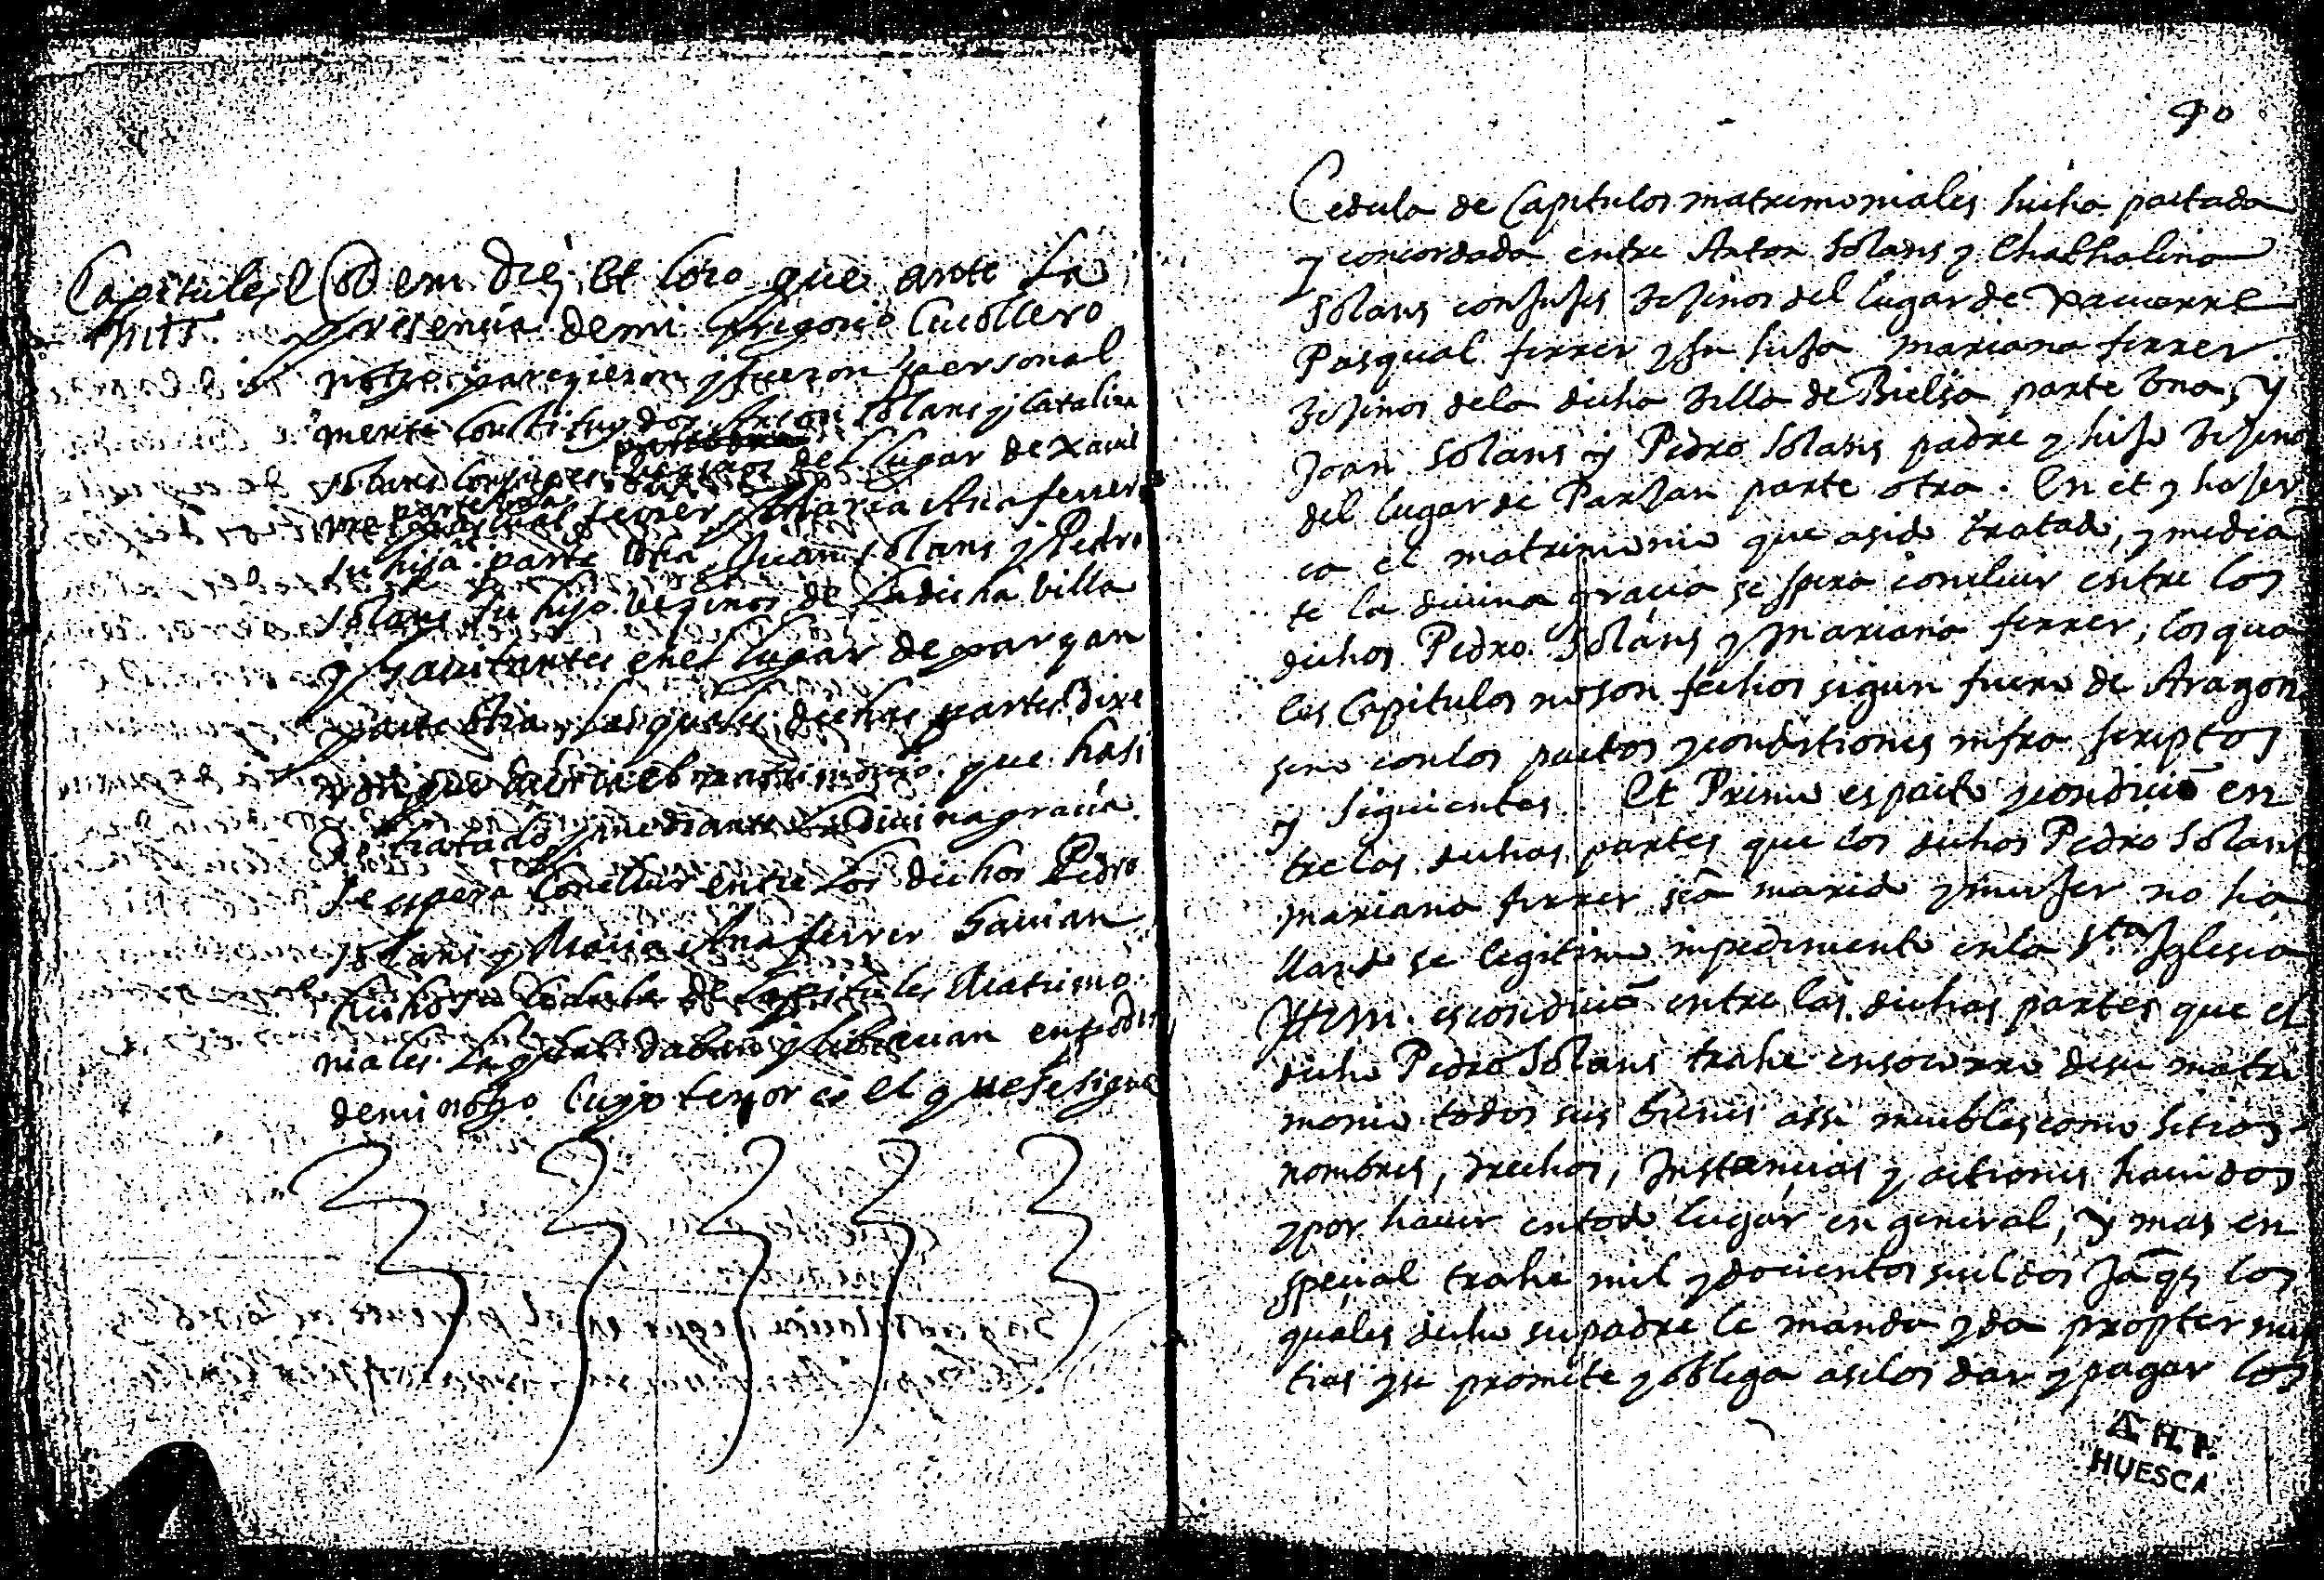 Capitules
Eodem die, et loco que ante la
presencia de mi Grigorio Cucollero
notro parezieron y fueron personal
mente constituydos Anton solans y Catalina
solans conjuges vezinos del lugar de xavie
rre parte una pasqual ferrer y Maria Ana ferrer
su hija parte otra Juan solans y Pedro
solans su hijo vezinos de la dicha villa
y havitantes en el lugar de parzan
parte otra, las quales dichas partes dixe
ron que acerca el matrimonio que hasi
do tratado y mediante la divina gracia
se espera concluir entre los dichos Pedro
solans y Maria Ana ferrer havian
hecho su cedula de capitules Matrimo
niales la qual daban y libravan en poder
de mi notro cuyo tenor es el que se sigue
40
Cedula de Capitulos matrimoniales hicha pactada
y concordada entre Anton Solans y Chathalina
Solans conjujes vezinos del lugar de Xavierre
Pasqual ferrer y su hija Mariana ferrer
vezinos de la dicha villa de Bielsa parte una, y
Joan Solans y Pedro Solans padre y hijo vezinos
del lugar de Parzan parte otra. En et y hazer
ca el matrimonio que asido tratado, y media
te la divina gracia se spera concluir entre los
dichos Pedro Solans y Mariana ferrer, los qua
les Capitulos no son fechos sigun fuero de Aragon
sino con los pactos y condictiones infra scriptos
y siguientes. Et Primo es pacto y condicio en
tre las dichas partes que los dichos Pedro Solans
Mariana ferrer sea marido y mujer no ha
llando se legitimo impedimento en la Sta Iglesia
Ittem es condicio entre las dichas partes que el
dicho Pedro Solans trahe en socorro de su matri
monio todos sus bienes assi muebles como sitios
nombres, drechos, Instancias y actiones havidos
y por haver en todo lugar en general, y mas en
special trahe mil y docientos sueldos Jaqs los
quales dicho su padre le manda y da propter nup
tias y se promete y obliga aselos dar y pagar los
A.H.P.
HUESCA